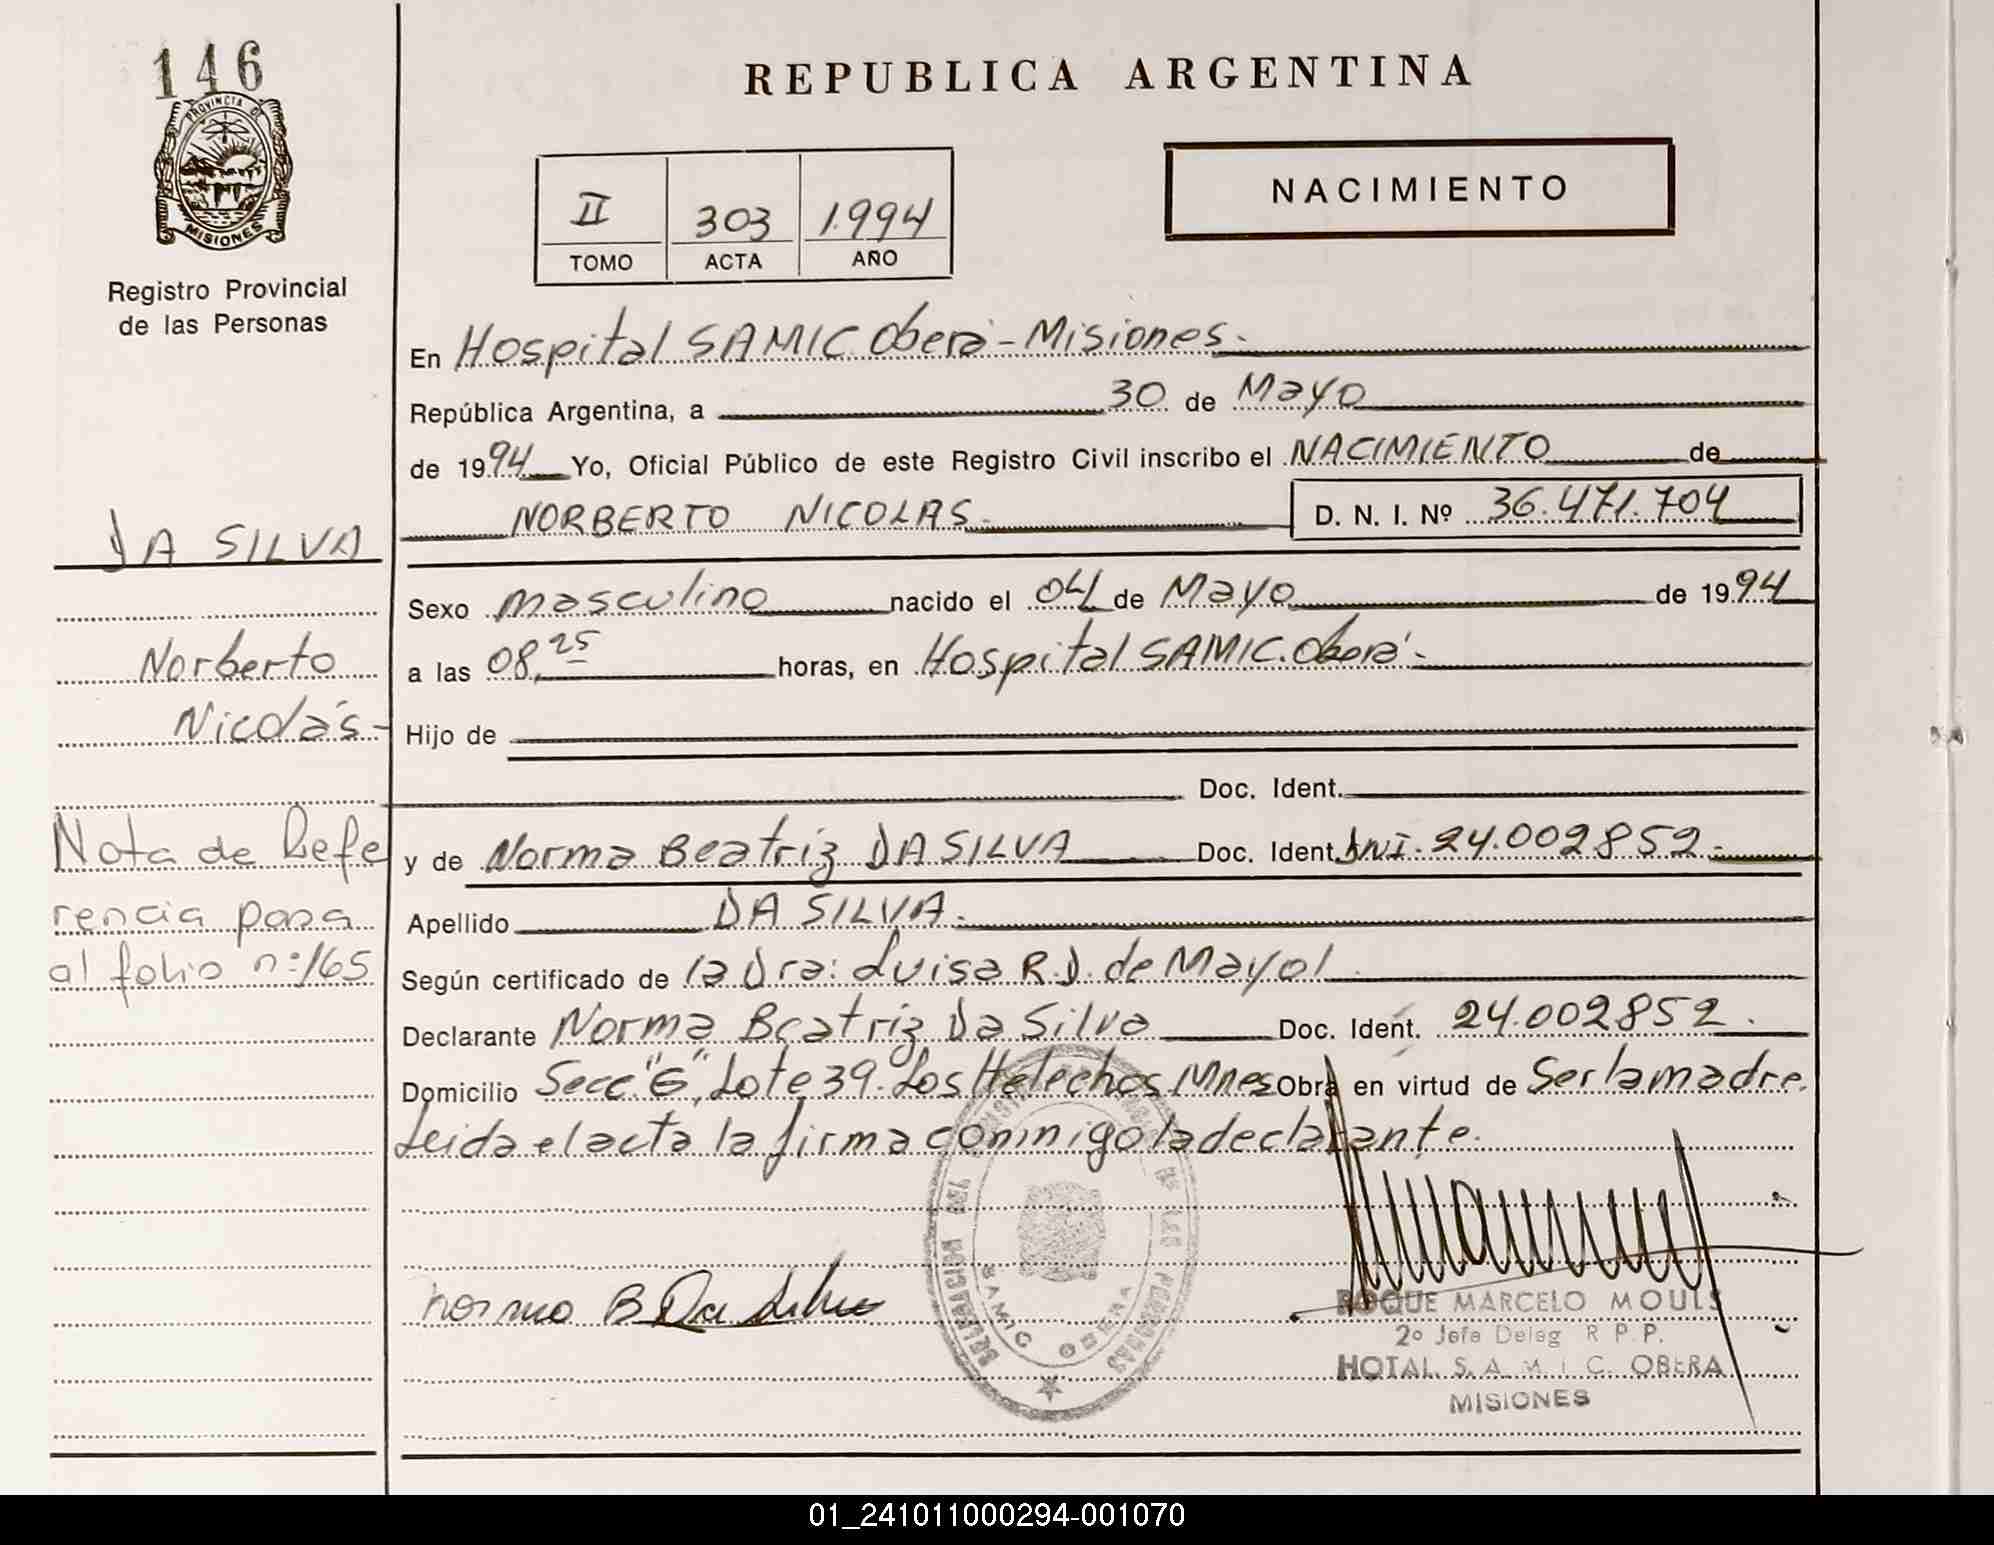 146
PROVINCIA DE
MISIONES
Registro Provincial
de las Personas
REPUBLICA ARGENTINA
NACIMIENTO
II 303 1.994
TOMO ACTA AÑO
En Hospital SAMIC Oberá - Misiones.
República Argentina, a 30 de Mayo
de 1994 Yo, Oficial Público de este Registro Civil inscribo el NACIMIENTO de
NORBERTO NICOLAS. D. N. I. Nº 36.471.704
DA SILVA
Norberto
Nicolás-
Nota de Refe
rencia pasa
al folio nº 165
Sexo masculino nacido el 04 de Mayo de 1994
a las 08,25 horas, en Hospital SAMIC. Oberá-
Hijo de
Doc. Ident.
y de Norma Beatriz DA SILVA Doc. Ident. DNI. 24.002852.
Apellido DA SILVA.
Según certificado de la Dra: Luisa R.D. de Mayol
Declarante Norma Beatriz Da Silva Doc. Ident. 24.002852.
Domicilio Secc "G", Lote 39. Los Helechos, Mnes Obra en virtud de Ser la madre.
Leida el acta la firma conmigo la declarante.
Norma B Da Silva
SAMIC OBERA
ROQUE MARCELO MOULS
2º Jefe Deleg R. P. P.
HOTAL. S. A. M. I. C. OBERA
MISIONES
01_241011000294-001070